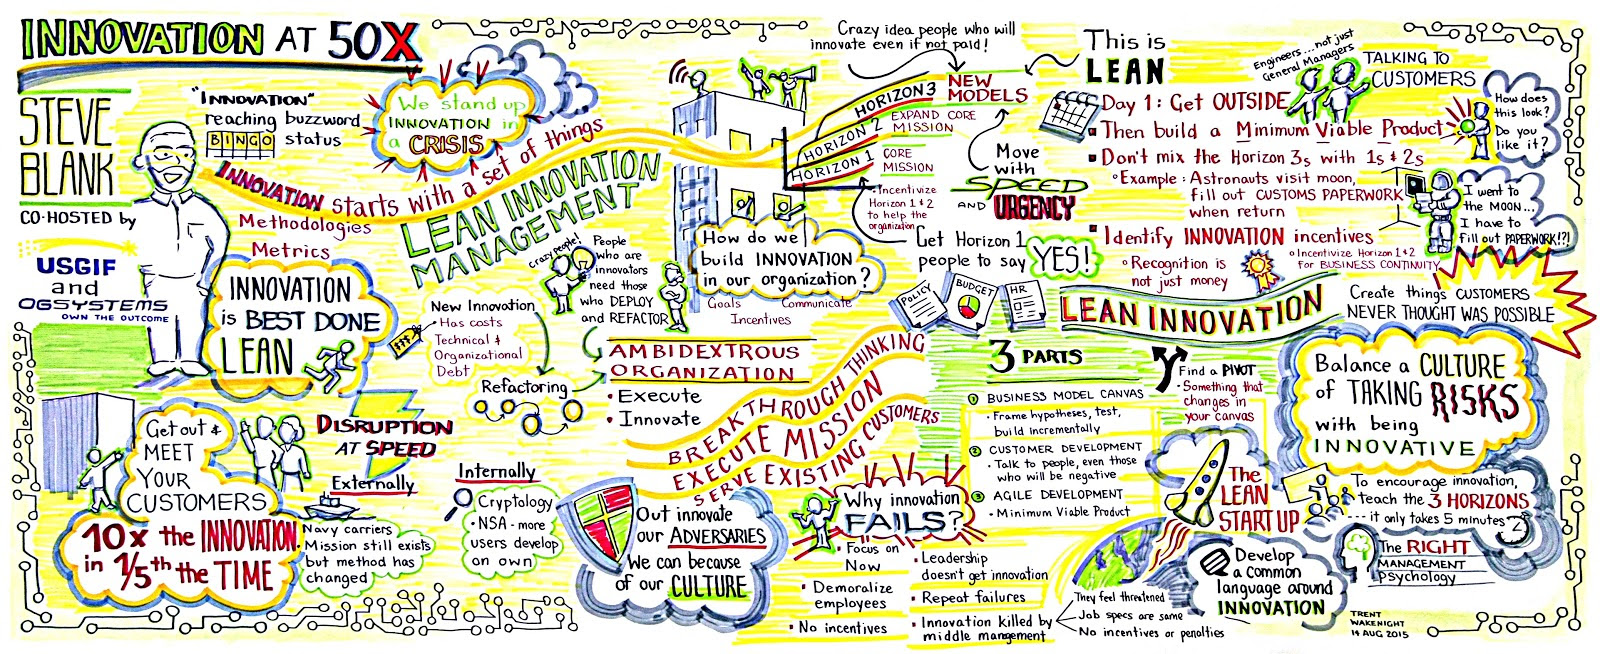 INNOVATION AT 50X
STEVE
BLANK
CO-HOSTED by
USGIF
and
OGSYSTEMS
OWN THE OUTCOME
"INNOVATION"
reaching buzzword
BINGO status
We stand up
INNOVATION in
a CRISIS
INNOVATION starts with a set of things
Methodologies
Metrics
LEAN INNOVATION
MANAGEMENT
INNOVATION
is BEST DONE
LEAN
Crazy people!
People
who are
innovators
need those
who DEPLOY
and REFACTOR
New Innovation
• Has costs
Technical &
Organizational
Debt
$$$
Refactoring
AMBIDEXTROUS
ORGANIZATION
• Execute
• Innovate
Get out &
MEET
YOUR
CUSTOMERS
10x the INNOVATION
in 1/5th the TIME
DISRUPTION
AT SPEED
Externally
Navy carriers
Mission still exists
but method has
changed
Internally
Cryptology
• NSA - more
users develop
on own
BREAKTHROUGH THINKING
EXECUTE MISSION
SERVE EXISTING CUSTOMERS
Out innovate
our ADVERSARIES
We can because
of our CULTURE
Crazy idea people who will
innovate even if not paid!
HORIZON 3
NEW
MODELS
HORIZON 2
EXPAND CORE
MISSION
HORIZON 1
CORE
MISSION
• Incentivize
Horizon 1 & 2
to help the
organization
How do we
build INNOVATION
in our organization?
Goals
Communicate
Incentives
Move
with
SPEED
AND URGENCY
Get Horizon 1
people to say
YES!
POLICY
BUDGET
HR
This is
LEAN
Engineers... not just
General Managers
TALKING TO
CUSTOMERS
Day 1: Get OUTSIDE
Then build a Minimum Viable Product
Don't mix the Horizon 3s with 1s & 2s
° Example: Astronauts visit moon,
fill out CUSTOMS PAPERWORK
when return
Identify INNOVATION incentives
° Recognition is
not just money
° Incentivize Horizon 1 & 2
for BUSINESS CONTINUITY
How does
this look?
Do you
like it?
I went to
the MOON...
I have to
fill out PAPERWORK!?!
LEAN INNOVATION
Create things CUSTOMERS
NEVER THOUGHT WAS POSSIBLE
3 PARTS
① BUSINESS MODEL CANVAS
• Frame hypotheses, test,
build incrementally
② CUSTOMER DEVELOPMENT
• Talk to people, even those
who will be negative
③ AGILE DEVELOPMENT
• Minimum Viable Product
Find a PIVOT
• Something that
changes in
your canvas
The
LEAN
START UP
Balance a CULTURE
of TAKING RISKS
with being
INNOVATIVE
To encourage innovation,
teach the 3 HORIZONS
... it only takes 5 minutes
The RIGHT
MANAGEMENT
psychology
Why innovation
FAILS?
• Focus on
Now
• Demoralize
employees
• No incentives
• Leadership
doesn't get innovation
• Repeat failures
• Innovation killed by
middle management
They feel threatened
Job specs are same
No incentives or penalties
Develop
a common
language around
INNOVATION
TRENT
WAKENIGHT
14 AUG 2015